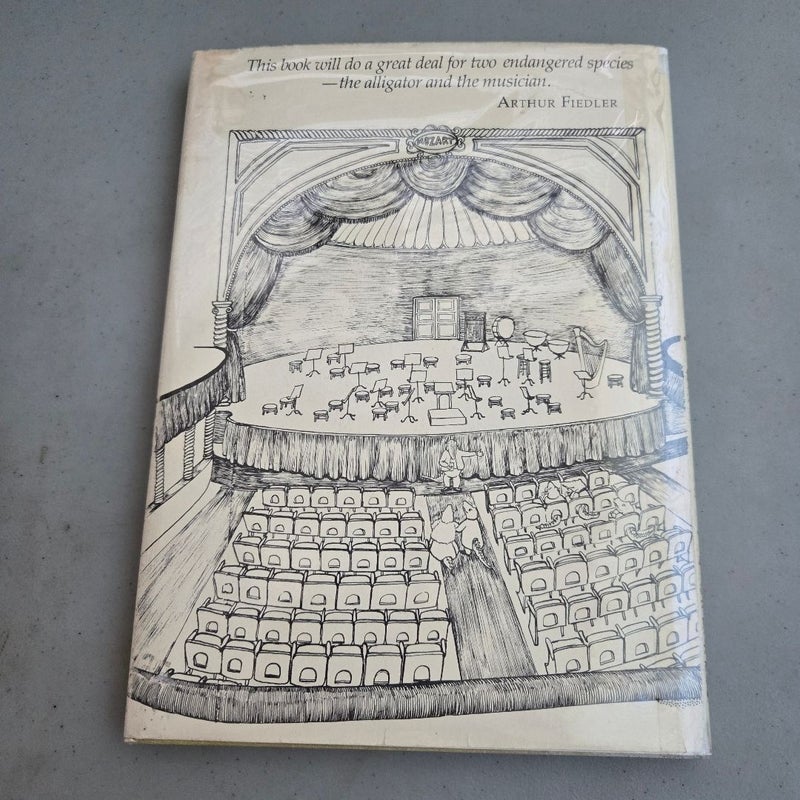 This book will do a great deal for two endangered species
—the alligator and the musician.
ARTHUR FIEDLER
MOZART